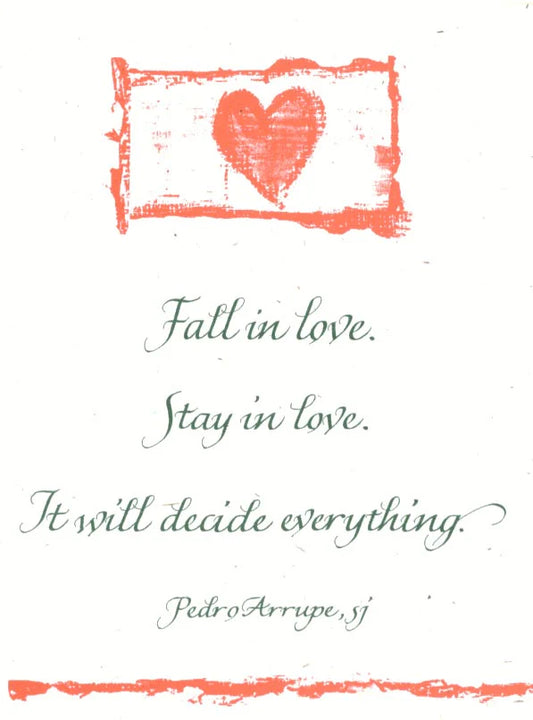 Fall in love.
Stay in love.
It will decide everything.
Pedro Arrupe, sj